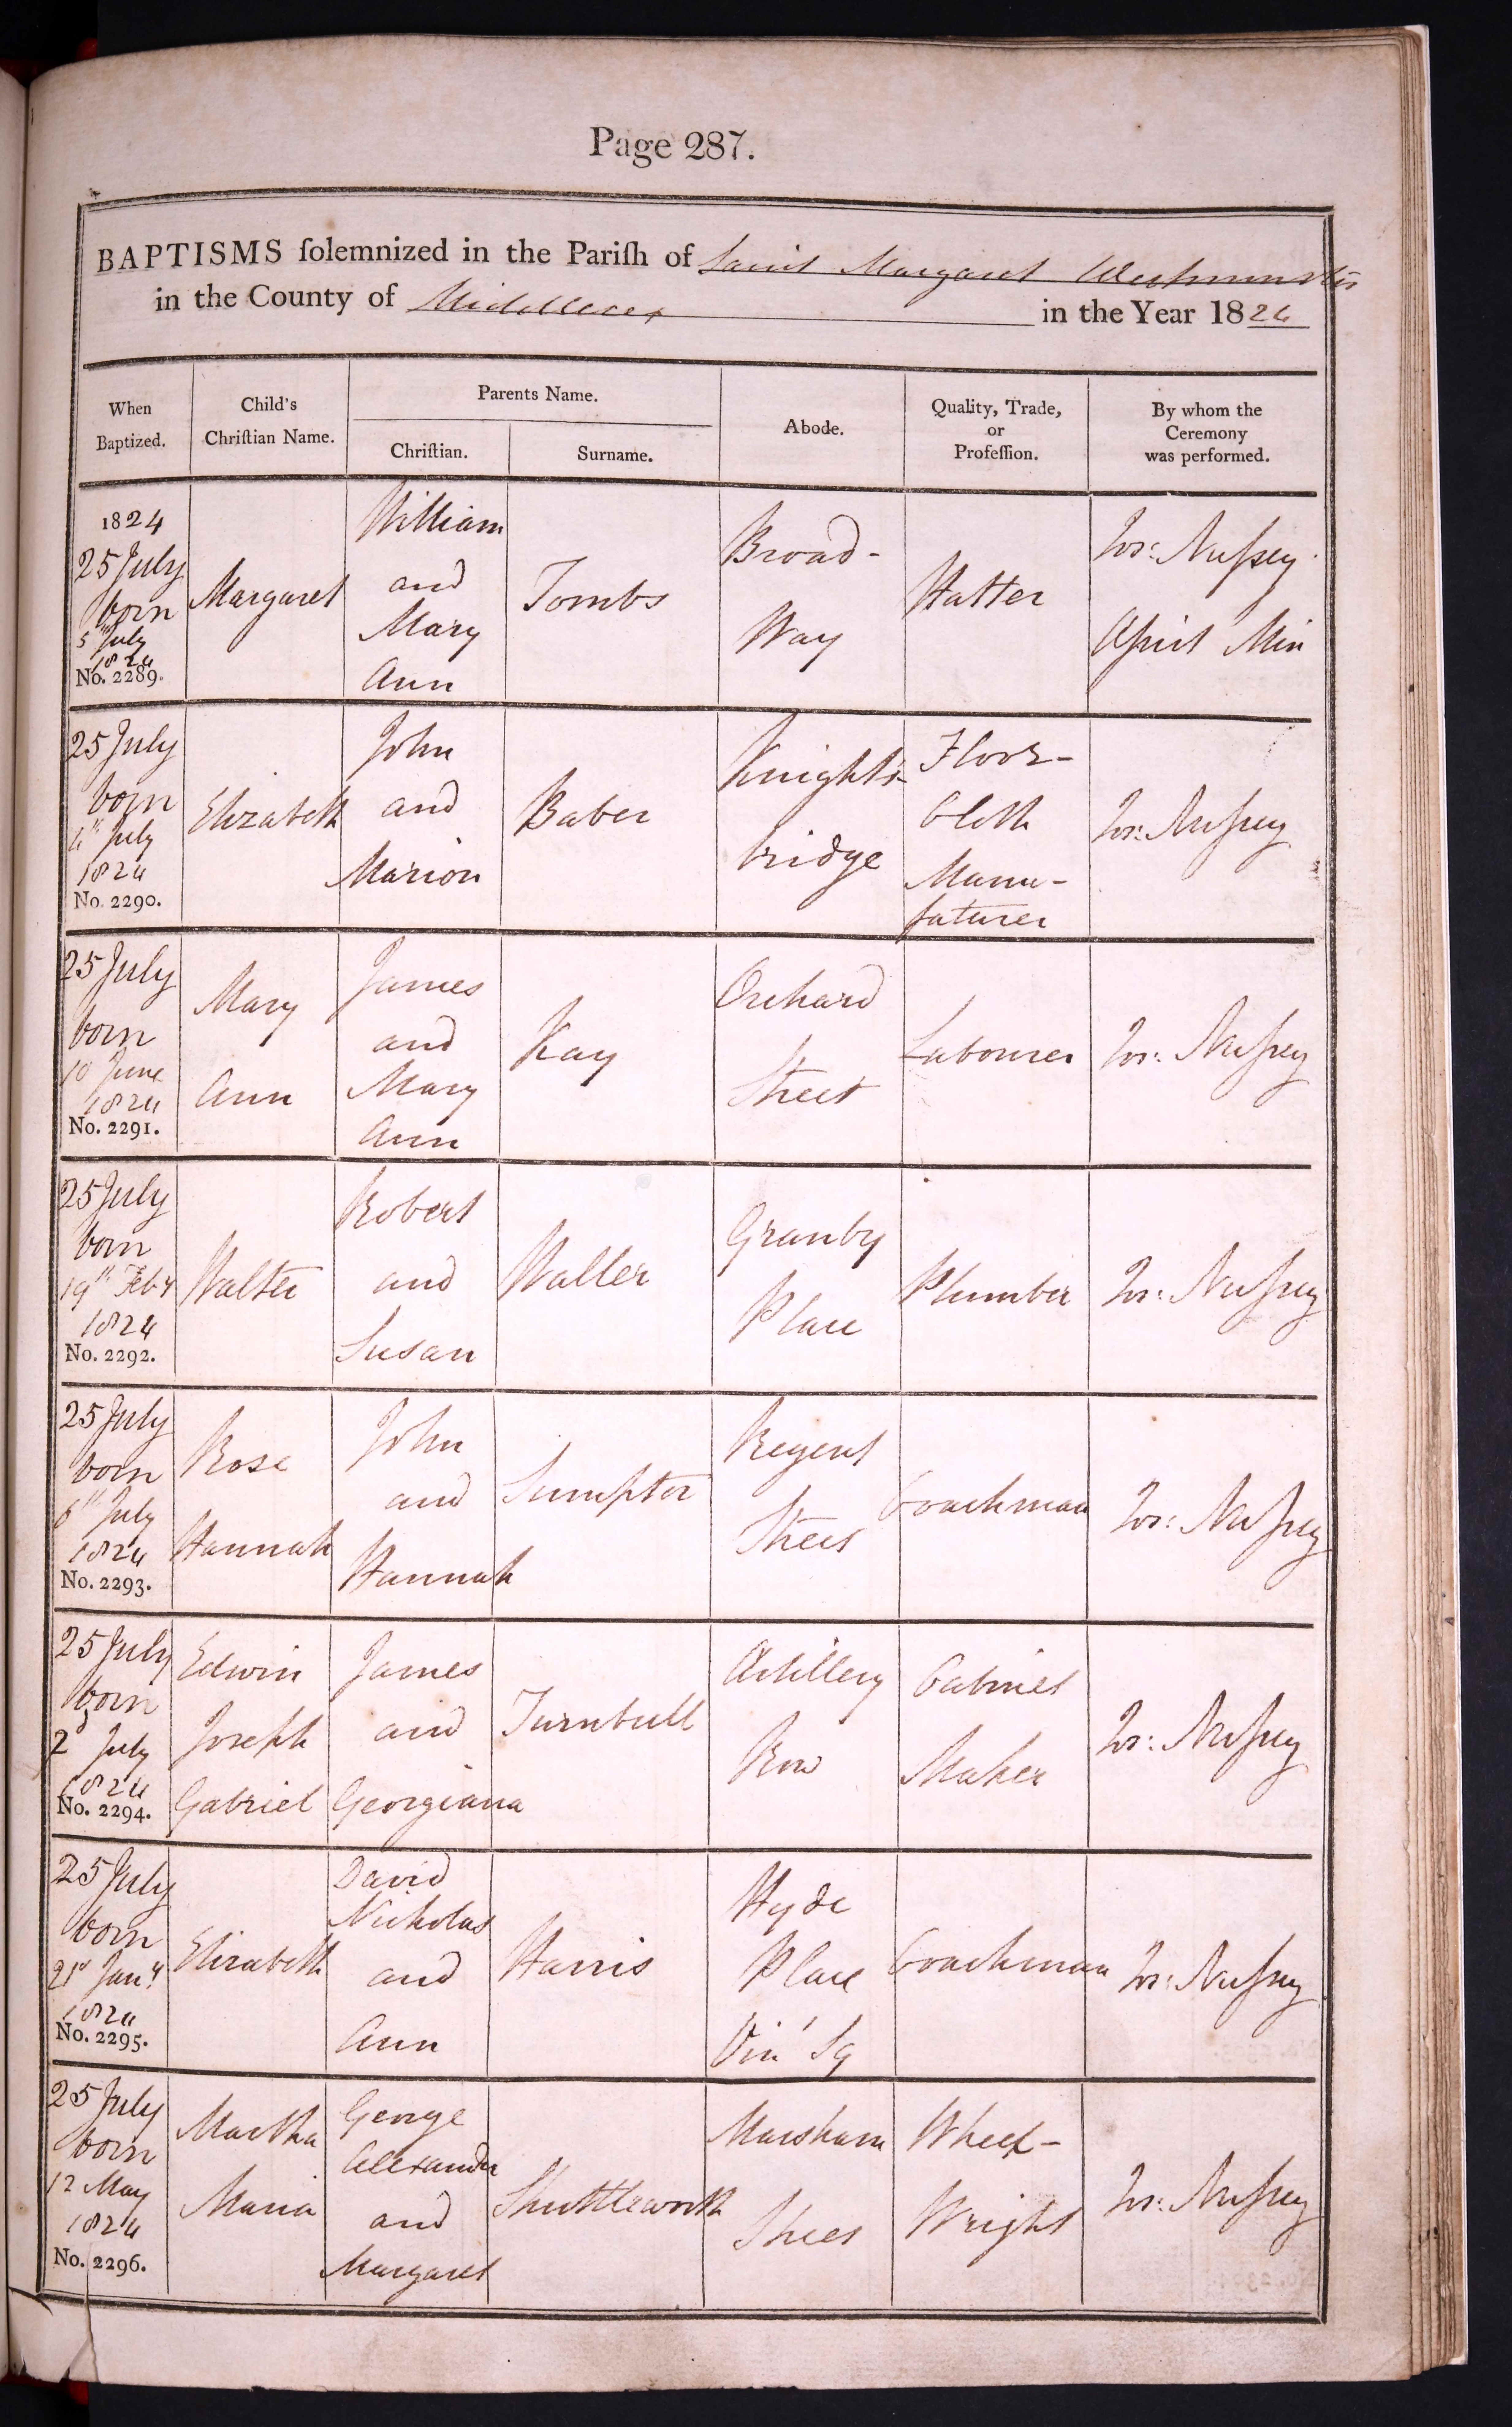 Page 287.
BAPTISMS ſolemnized in the Pariſh of Saint Margaret Westminster
in the County of Middlesex in the Year 1824
When Baptized.
Child's Chriſtian Name.
Parents Name.
Chriſtian.
Surname.
Abode.
Quality, Trade, or Profeſſion.
By whom the Ceremony was performed.
1824
25 July
born
5th July
1824
No. 2289.
Margaret
William
and
Mary
Ann
Tombs
Broad-
Way
Hatter
Jos: Nuſsey
Aſsist Min
25 July
born
4th July
1824
No. 2290.
Elizabeth
John
and
Marion
Baber
Knights-
bridge
Floor-
Cloth
Manu-
faturer
Jos: Nuſsey
25 July
born
10 June
1824
No. 2291.
Mary
Ann
James
and
Mary
Ann
Kay
Orchard
Street
Labourer
Jos: Nuſsey
25 July
born
19th Feby
1824
No. 2292.
Walter
Robert
and
Susan
Waller
Granby
Place
Plumber
Jos: Nuſsey
25 July
born
6th July
1824
No. 2293.
Rose
Hannah
John
and
Hannah
Sumpter
Regent
Street
Coachman
Jos: Nuſsey
25 July
born
2d July
1824
No. 2294.
Edwin
Joseph
Gabriel
James
and
Georgiana
Turnbull
Artillery
Row
Cabinet
Maker
Jos: Nuſsey
25 July
born
21st Jany
1824
No. 2295.
Elizabeth
David
Nicholas
and
Ann
Harris
Hyde
Place
Vin' Sq
Coachman
Jos: Nuſsey
25 July
born
12 May
1824
No. 2296.
Martha
Maria
George
Alexander
and
Margaret
Shuttleworth
Marsham
Street
Wheel-
Wright
Jos: Nuſsey